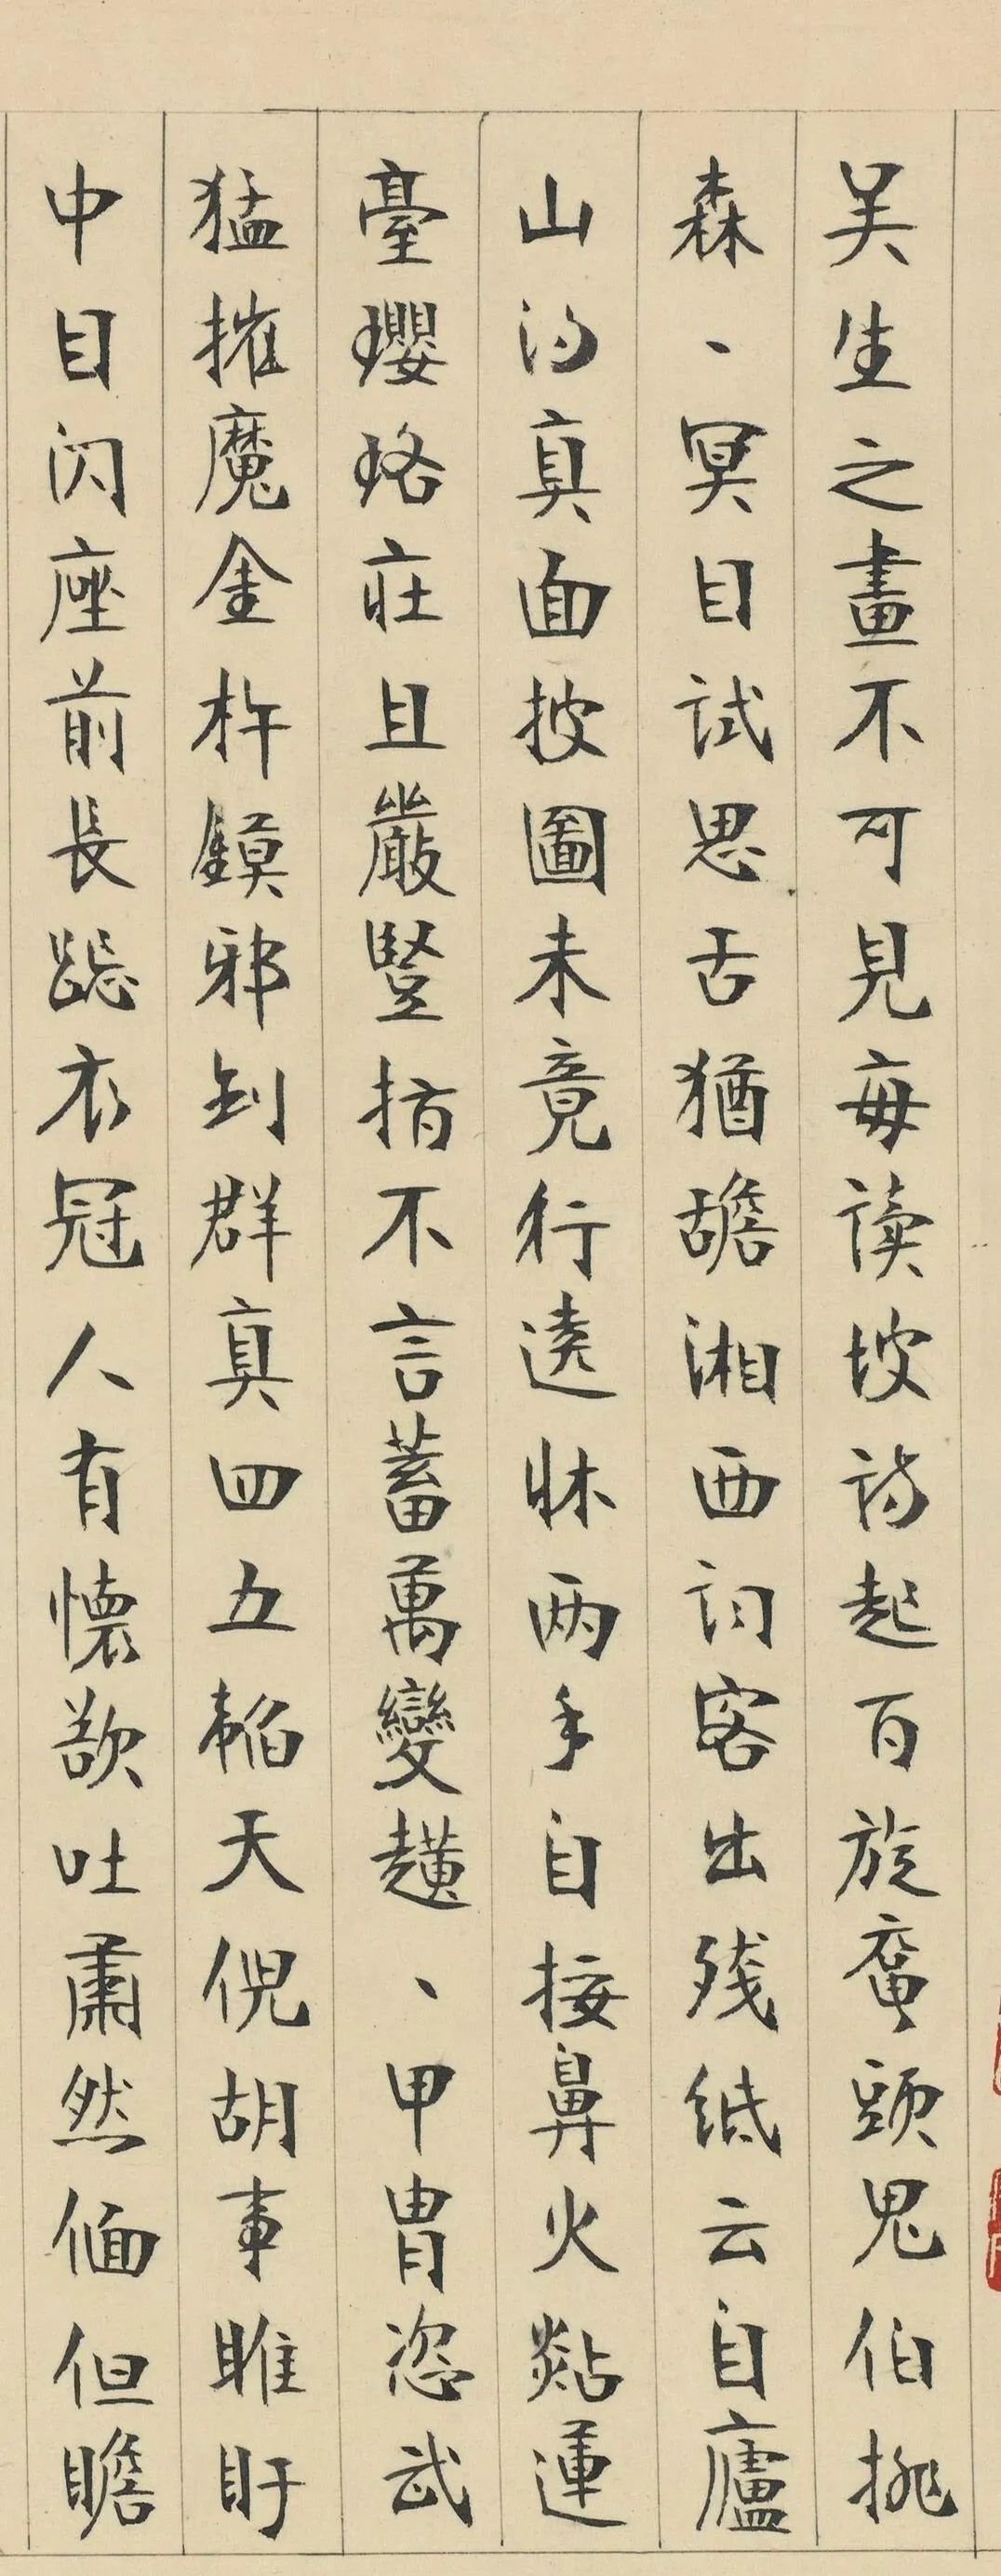 吴生之畫不可見每读坡诗起百旋奮頭鬼伯挑
森丶冥目试思舌猶舚湘西词客出残纸云自廬
山得真面披圖未竟行遶牀两手自接鼻火黏蓮
臺瓔珞莊且嚴豎指不言蓄萬變趪丶甲胄恣武
猛摧魔金杵鏌邪到群真四五韜天倪胡事睢盱
中目闪座前長跽衣冠人有懷欲吐肅然偭但瞻